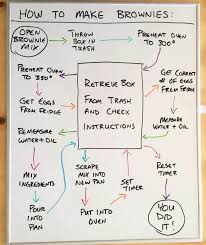 HOW TO MAKE BROWNIES:
OPEN
BROWNIE
MIX
THROW
BOX IN
TRASH
PREHEAT OVEN
TO 300°
PREHEAT OVEN
TO 350°
GET CORRECT
# OF EGGS
FROM FRIDGE
RETRIEVE BOX
FROM TRASH
AND CHECK
INSTRUCTIONS
GET EGGS
FROM FRIDGE
MEASURE
WATER + OIL
REMEASURE
WATER + OIL
MIX
INGREDIENTS
SCRAPE
MIX INTO
NEW PAN
SET
TIMER
RESET
TIMER
POUR
INTO
PAN
PUT INTO
OVEN
YOU
DID
IT!